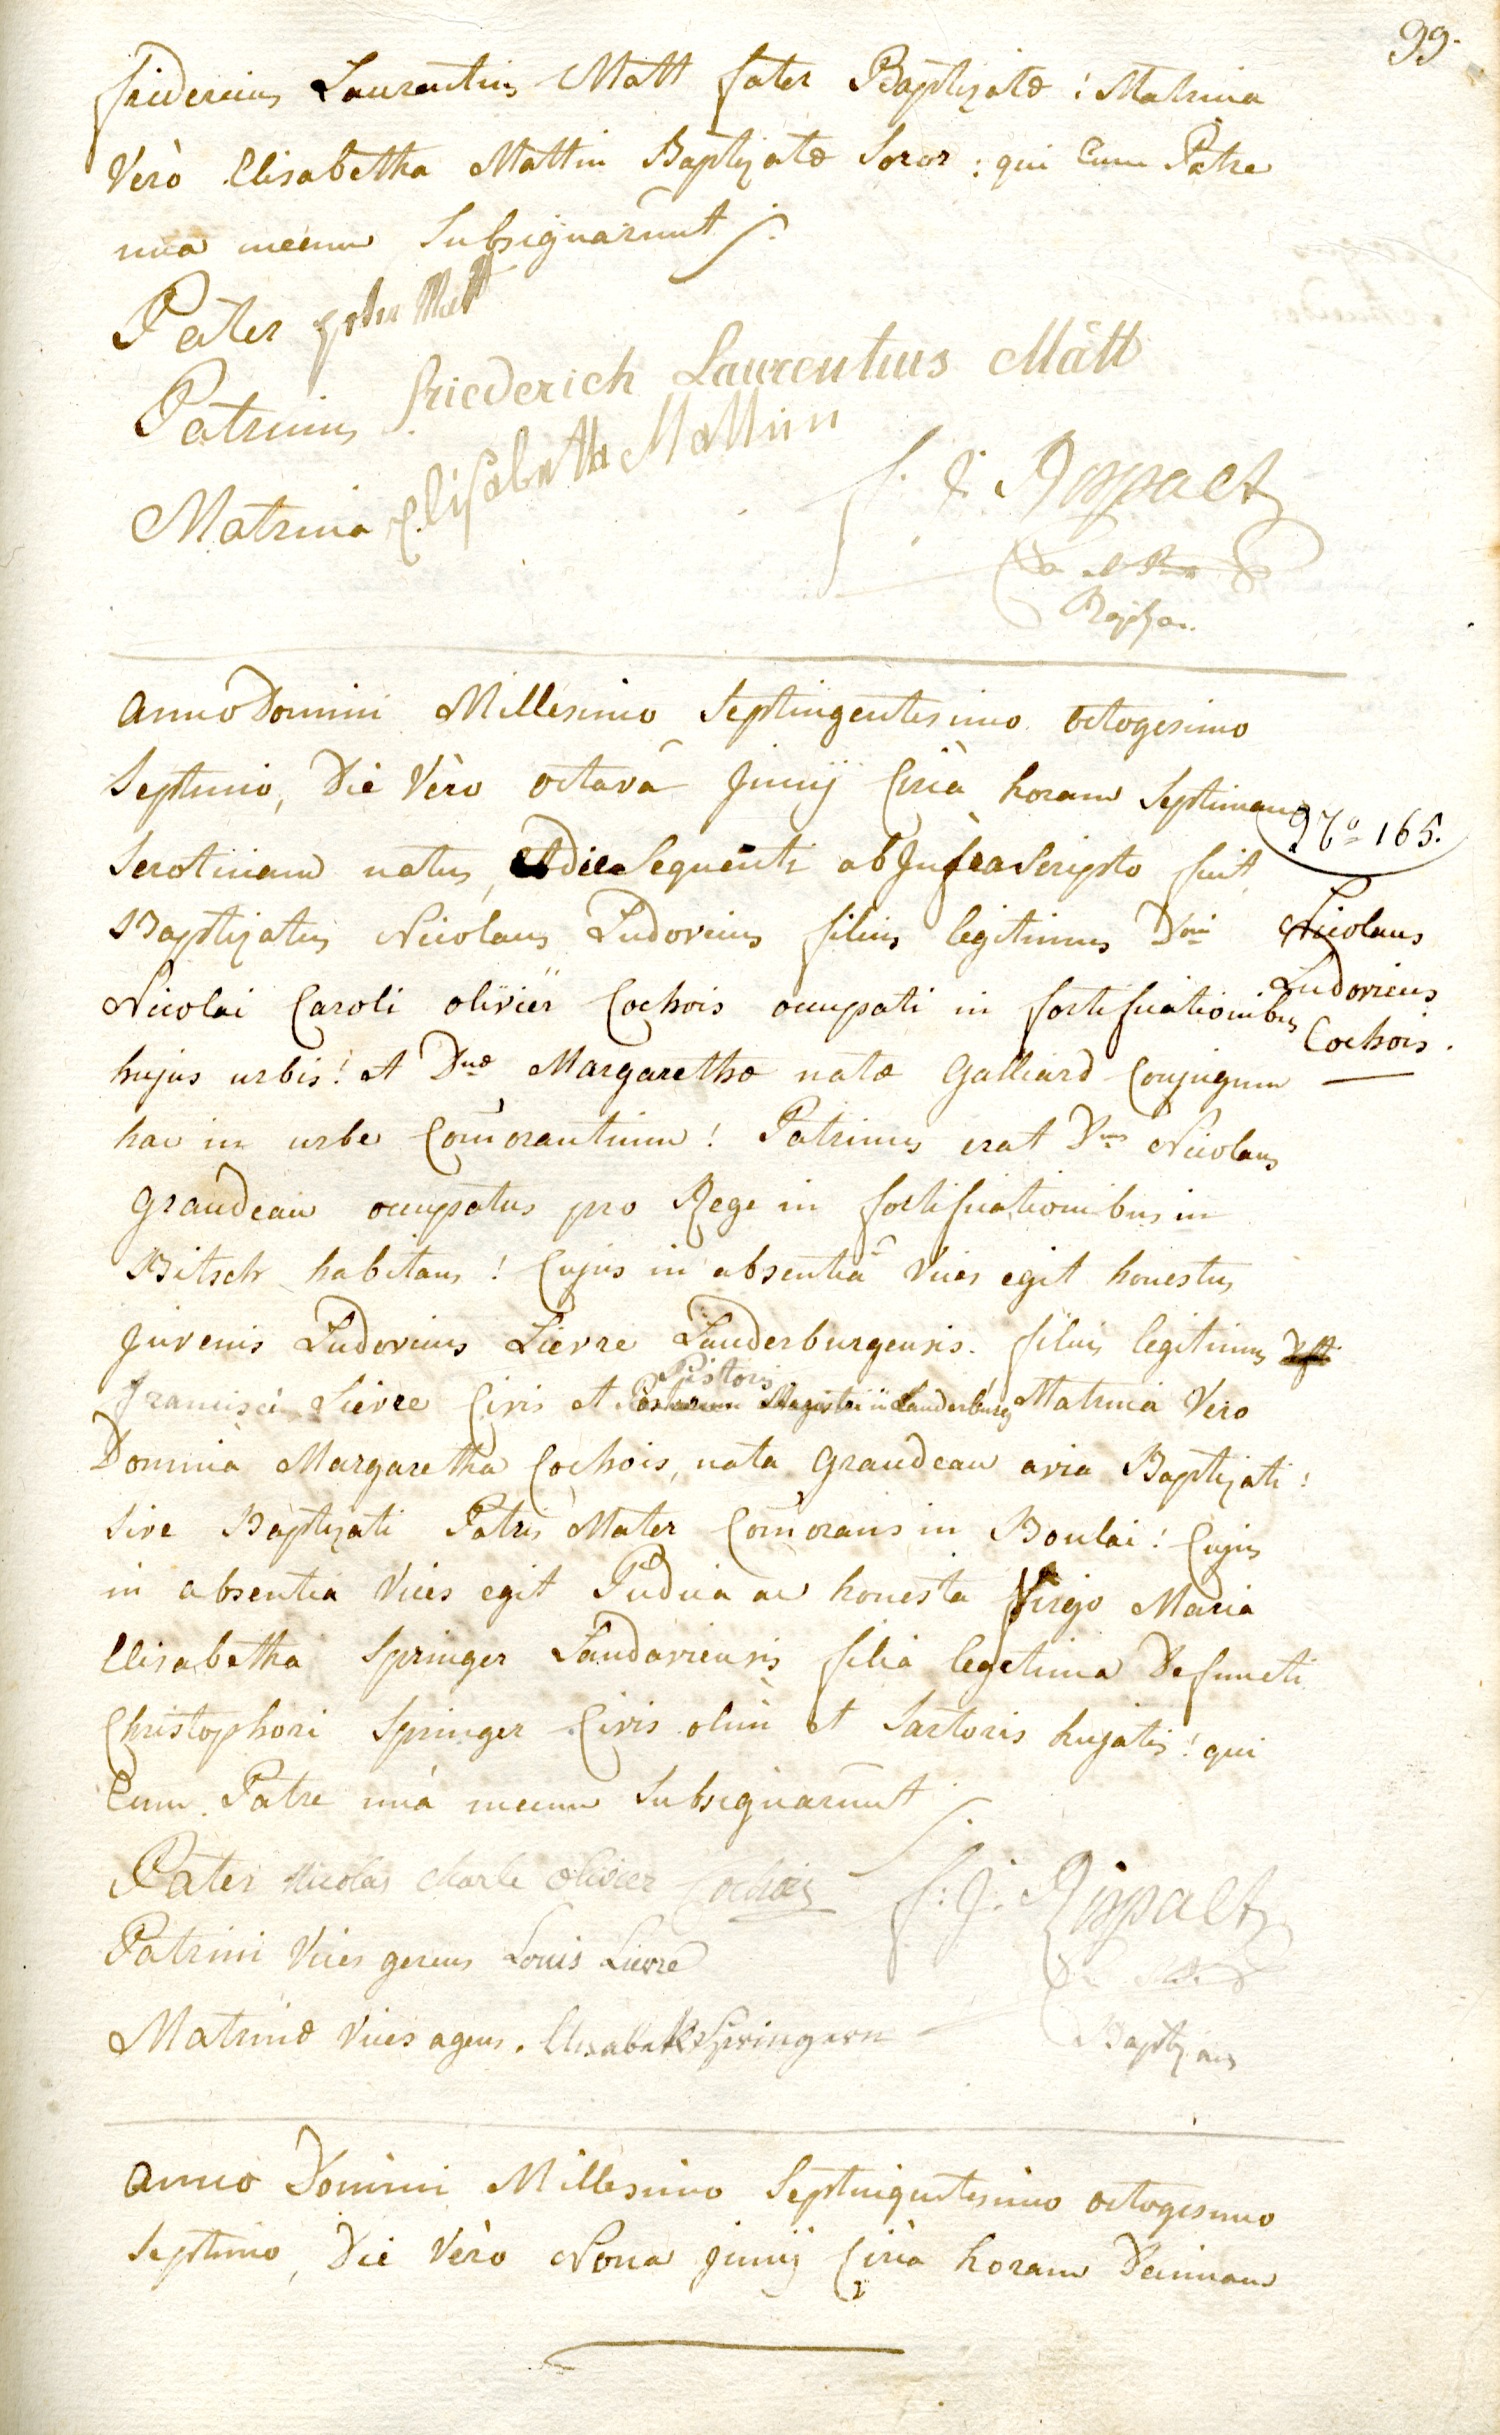 99.
fridericus Laurentius Matt frater Baptizatæ! Matrina
Verò Elisabetha Mattin Baptizatæ Soror: qui Cum Patre
una mecum Subsignarunt
Pater Matt
Patrinus friederich Laurentius Mätt
Matrina Elisabetha Mattin
Baptizans
Anno Domini Millesimo Septingentesimo octogesimo
Septimo, Die Vèro octavâ Junij Circà horam Septimam
Serotinam natus, et die Sequenti ab Infra Scripto fuit
Baptizatus Nicolaus Ludovicus filius legitimus Dni
Nº 165.
Nicolaus
Ludovicus
Cochois.
Nicolai Caroli olivier Cochois occupati in fortificationibus
hujus urbis! et Dnæ Margarethæ natæ Galliard Conjugum
hac in urbe Com̄orantium! Patrinus erat Dnus Nicolaus
Grandeau occupatus pro Rege in fortificationibus in
Bitsch habitans! Cujus in absentiâ Vices egit honestus
Juvenis Ludovicus Lievre Lauderburgensis. filius legitimus
Francisci Lievre Civis et Pistoris Magistri in Lauderburg Matrina Vero
Domina Margaretha Cochois, nata Grandeau avia Baptizati!
Sive Baptizati Patris Mater Com̄orans in Boulai! Cujus
in absentia Vices egit Pudica ac honesta Virgo Maria
Elisabetha Springer Landaviensis filia legitima Defuncti
Christophori Springer Civis olim et Sartoris hujatis! qui
Cum Patre unà mecum Subsignarunt
Pater Nicolas Charle Olivier Cochois
Patrini Vices gerens Louis Lievre
Matrinæ Vices agens. Elisabeth Springern
Baptizans
Anno Domini Millesimo Septingentesimo octogesimo
Septimo, Die Vèro Nona Junij Circà horam Decimam